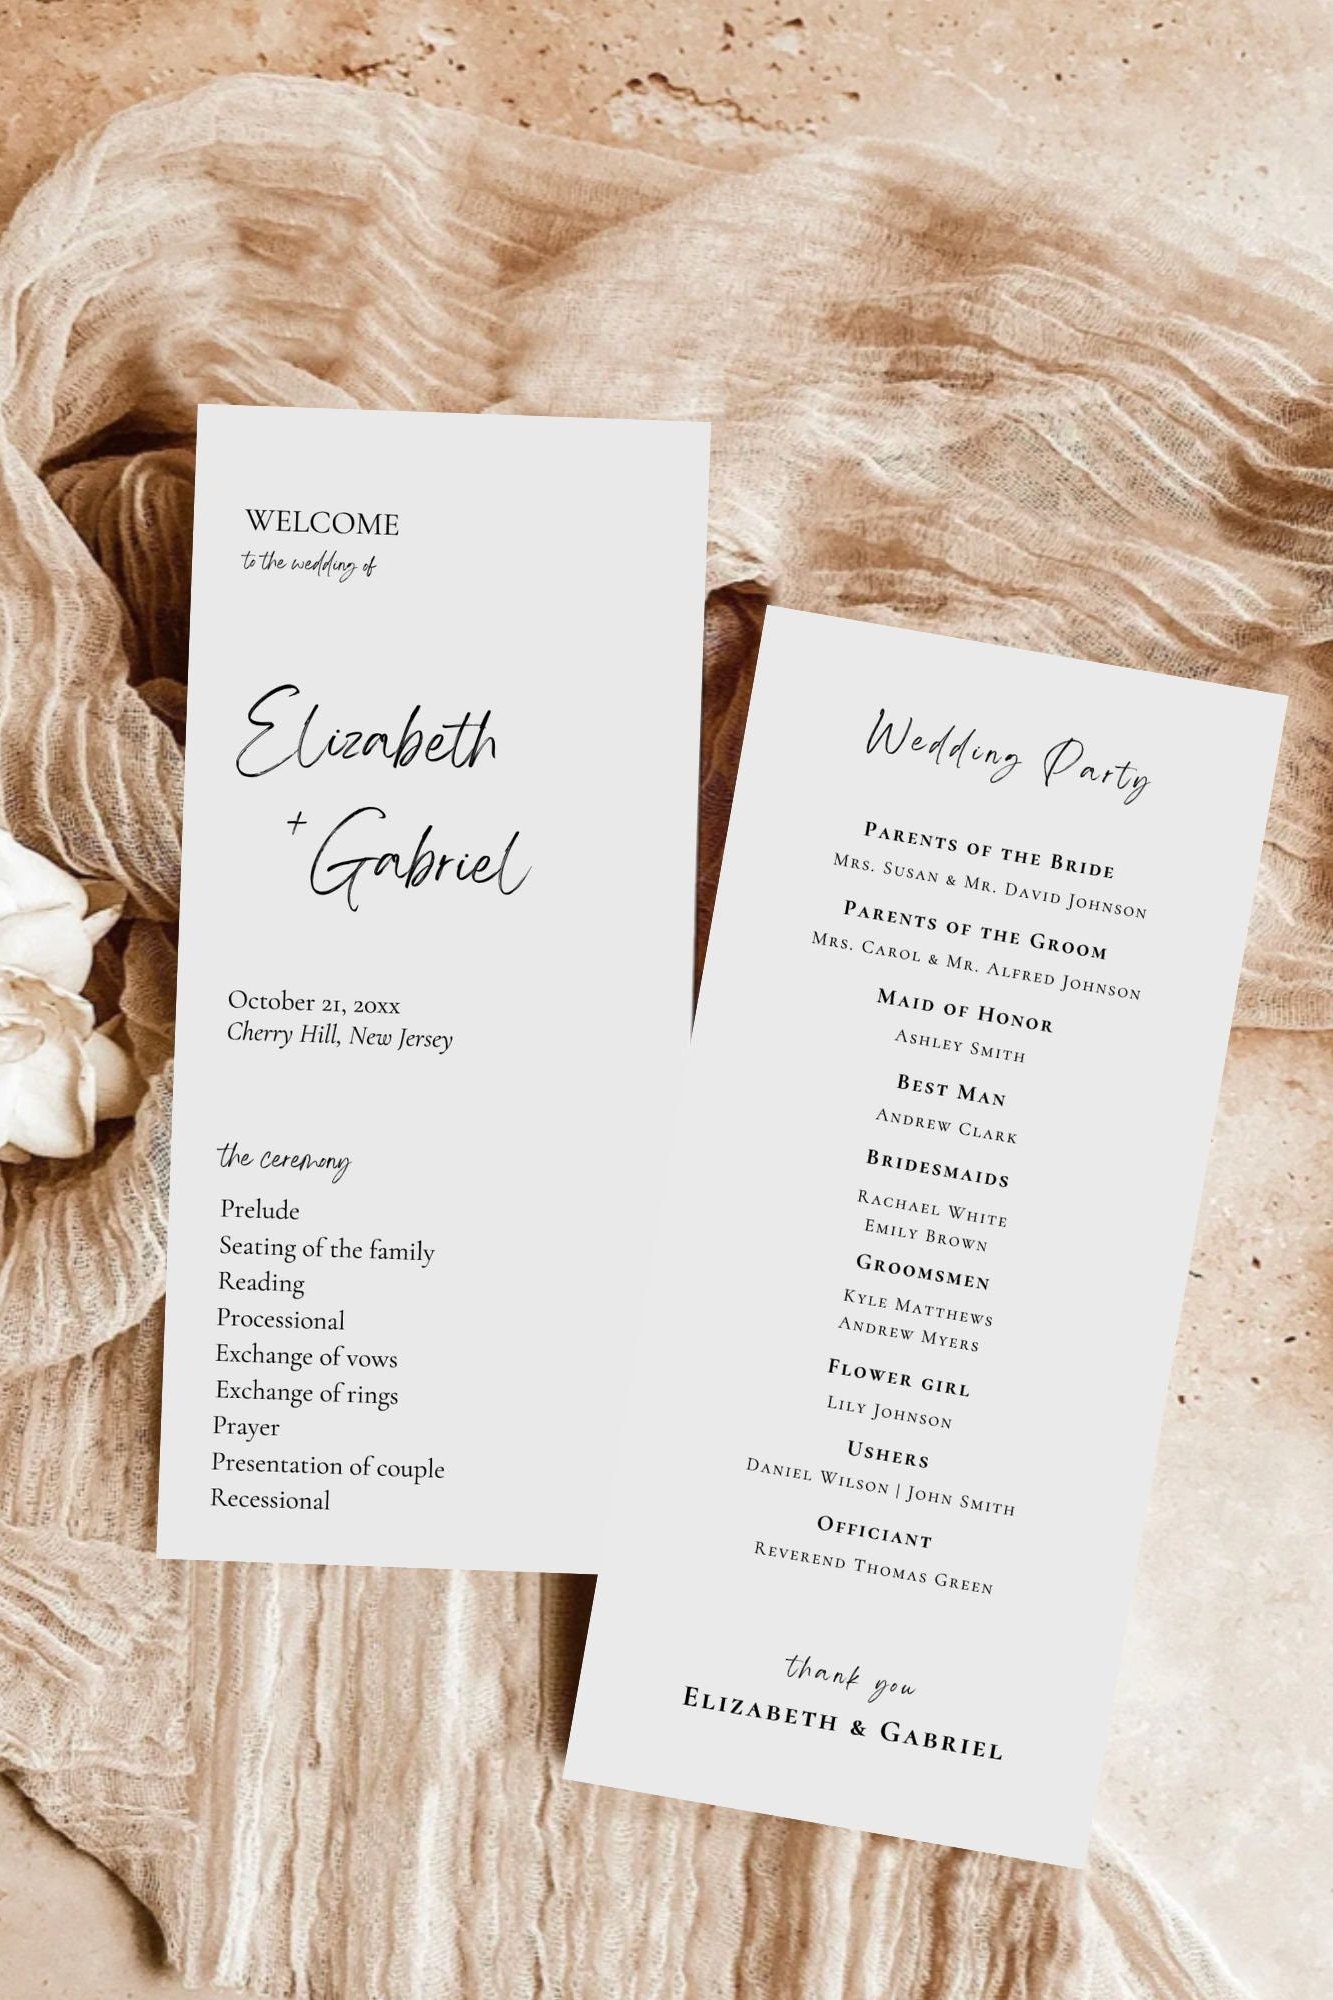 WELCOME
to the wedding of
Elizabeth
+ Gabriel
October 21, 20xx
Cherry Hill, New Jersey
the ceremony
Prelude
Seating of the family
Reading
Processional
Exchange of vows
Exchange of rings
Prayer
Presentation of couple
Recessional
Wedding Party
Parents of the Bride
Mrs. Susan & Mr. David Johnson
Parents of the Groom
Mrs. Carol & Mr. Alfred Johnson
Maid of Honor
Ashley Smith
Best Man
Andrew Clark
Bridesmaids
Rachael White
Emily Brown
Groomsmen
Kyle Matthews
Andrew Myers
Flower girl
Lily Johnson
Ushers
Daniel Wilson | John Smith
Officiant
Reverend Thomas Green
thank you
Elizabeth & Gabriel